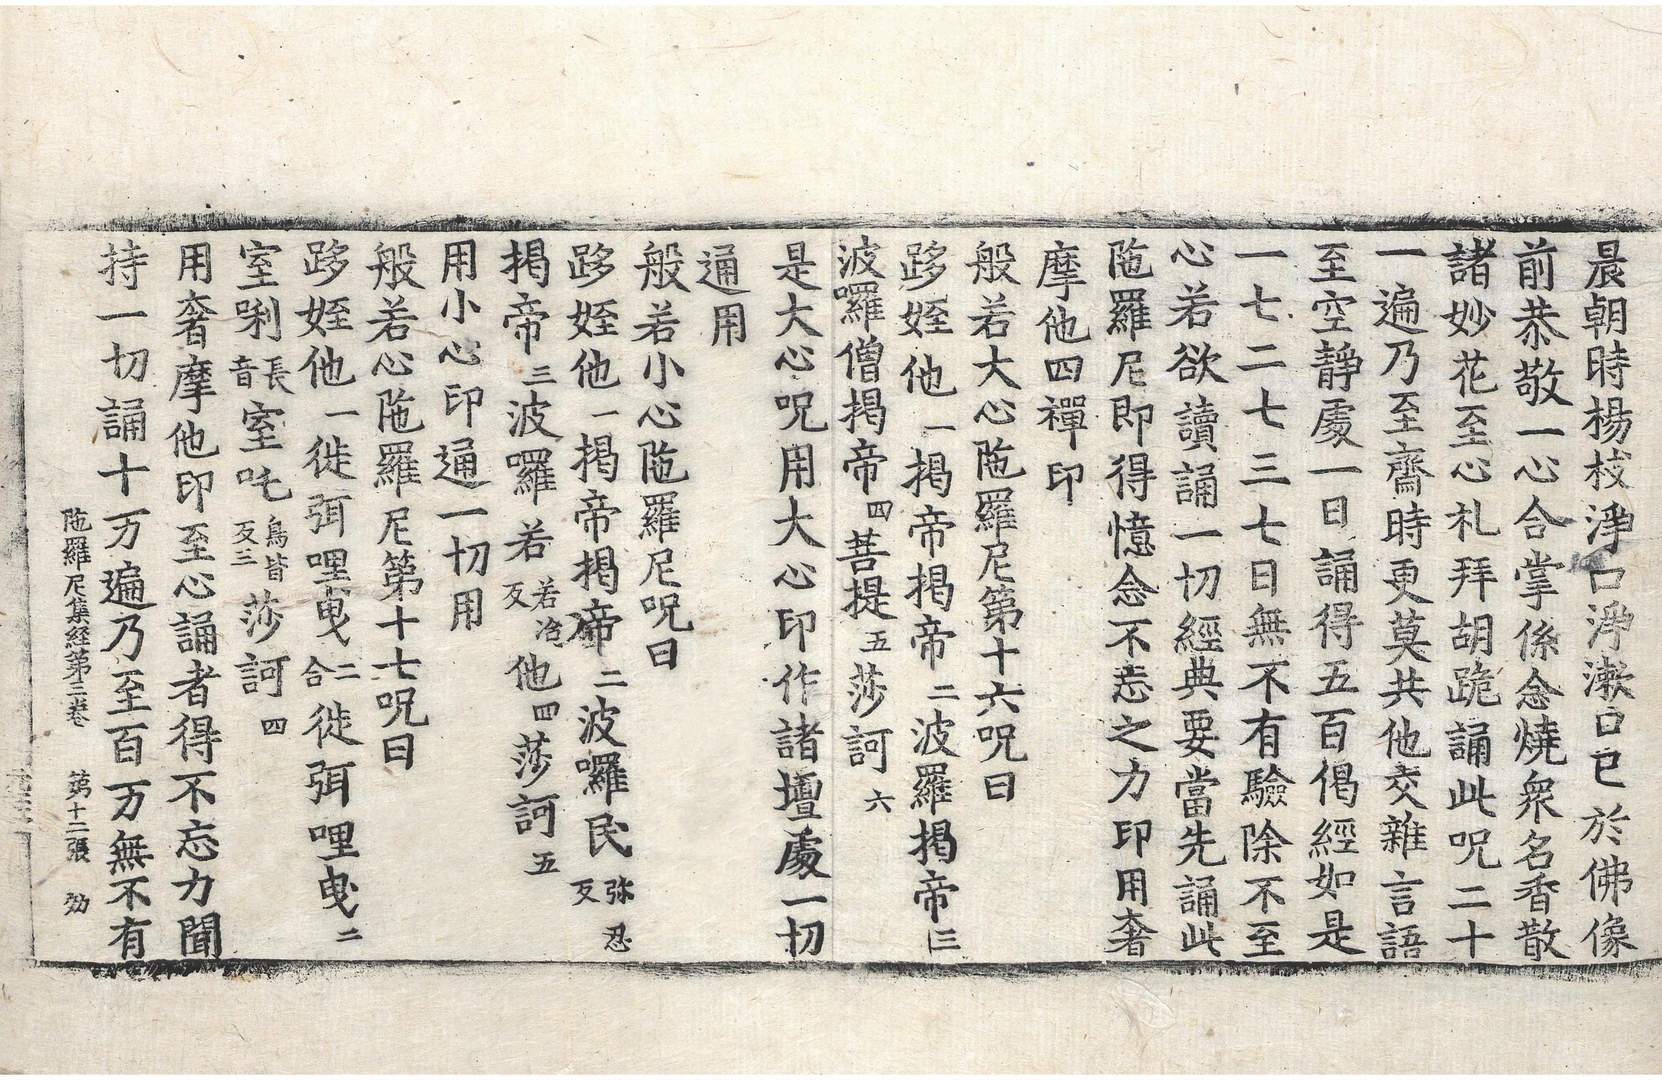 晨朝時楊枝淨口淨漱口已於佛像
前恭敬一心合掌係念燒衆名香散
諸妙花至心礼拜胡跪誦此呪二十
一遍乃至齋時更莫共他交雜言語
至空靜處一日誦得五百偈經如是
一七二七三七日無不有驗除不至
心若欲讀誦一切經典要當先誦此
陁羅尼即得憶念不忘之力印用奢
摩他四禪印
般若大心陁羅尼第十六呪曰
跢姪他一揭帝揭帝二波羅揭帝三
波囉僧揭帝四菩提五莎訶六
是大心呪用大心印作諸壇處一切
通用
般若小心陁羅尼呪曰
跢姪他一揭帝揭帝二波囉民弥忍反
揭帝三波囉若若冶反他四莎訶五
用小心印通一切用
般若心陁羅尼第十七呪曰
跢姪他一徙弭哩曳二合徙弭哩曳二
室唎長音室吒烏皆反三莎訶四
用奢摩他印至心誦者得不忘力聞
持一切誦十万遍乃至百万無不有
陁羅尼集經第三卷 第十二張 効